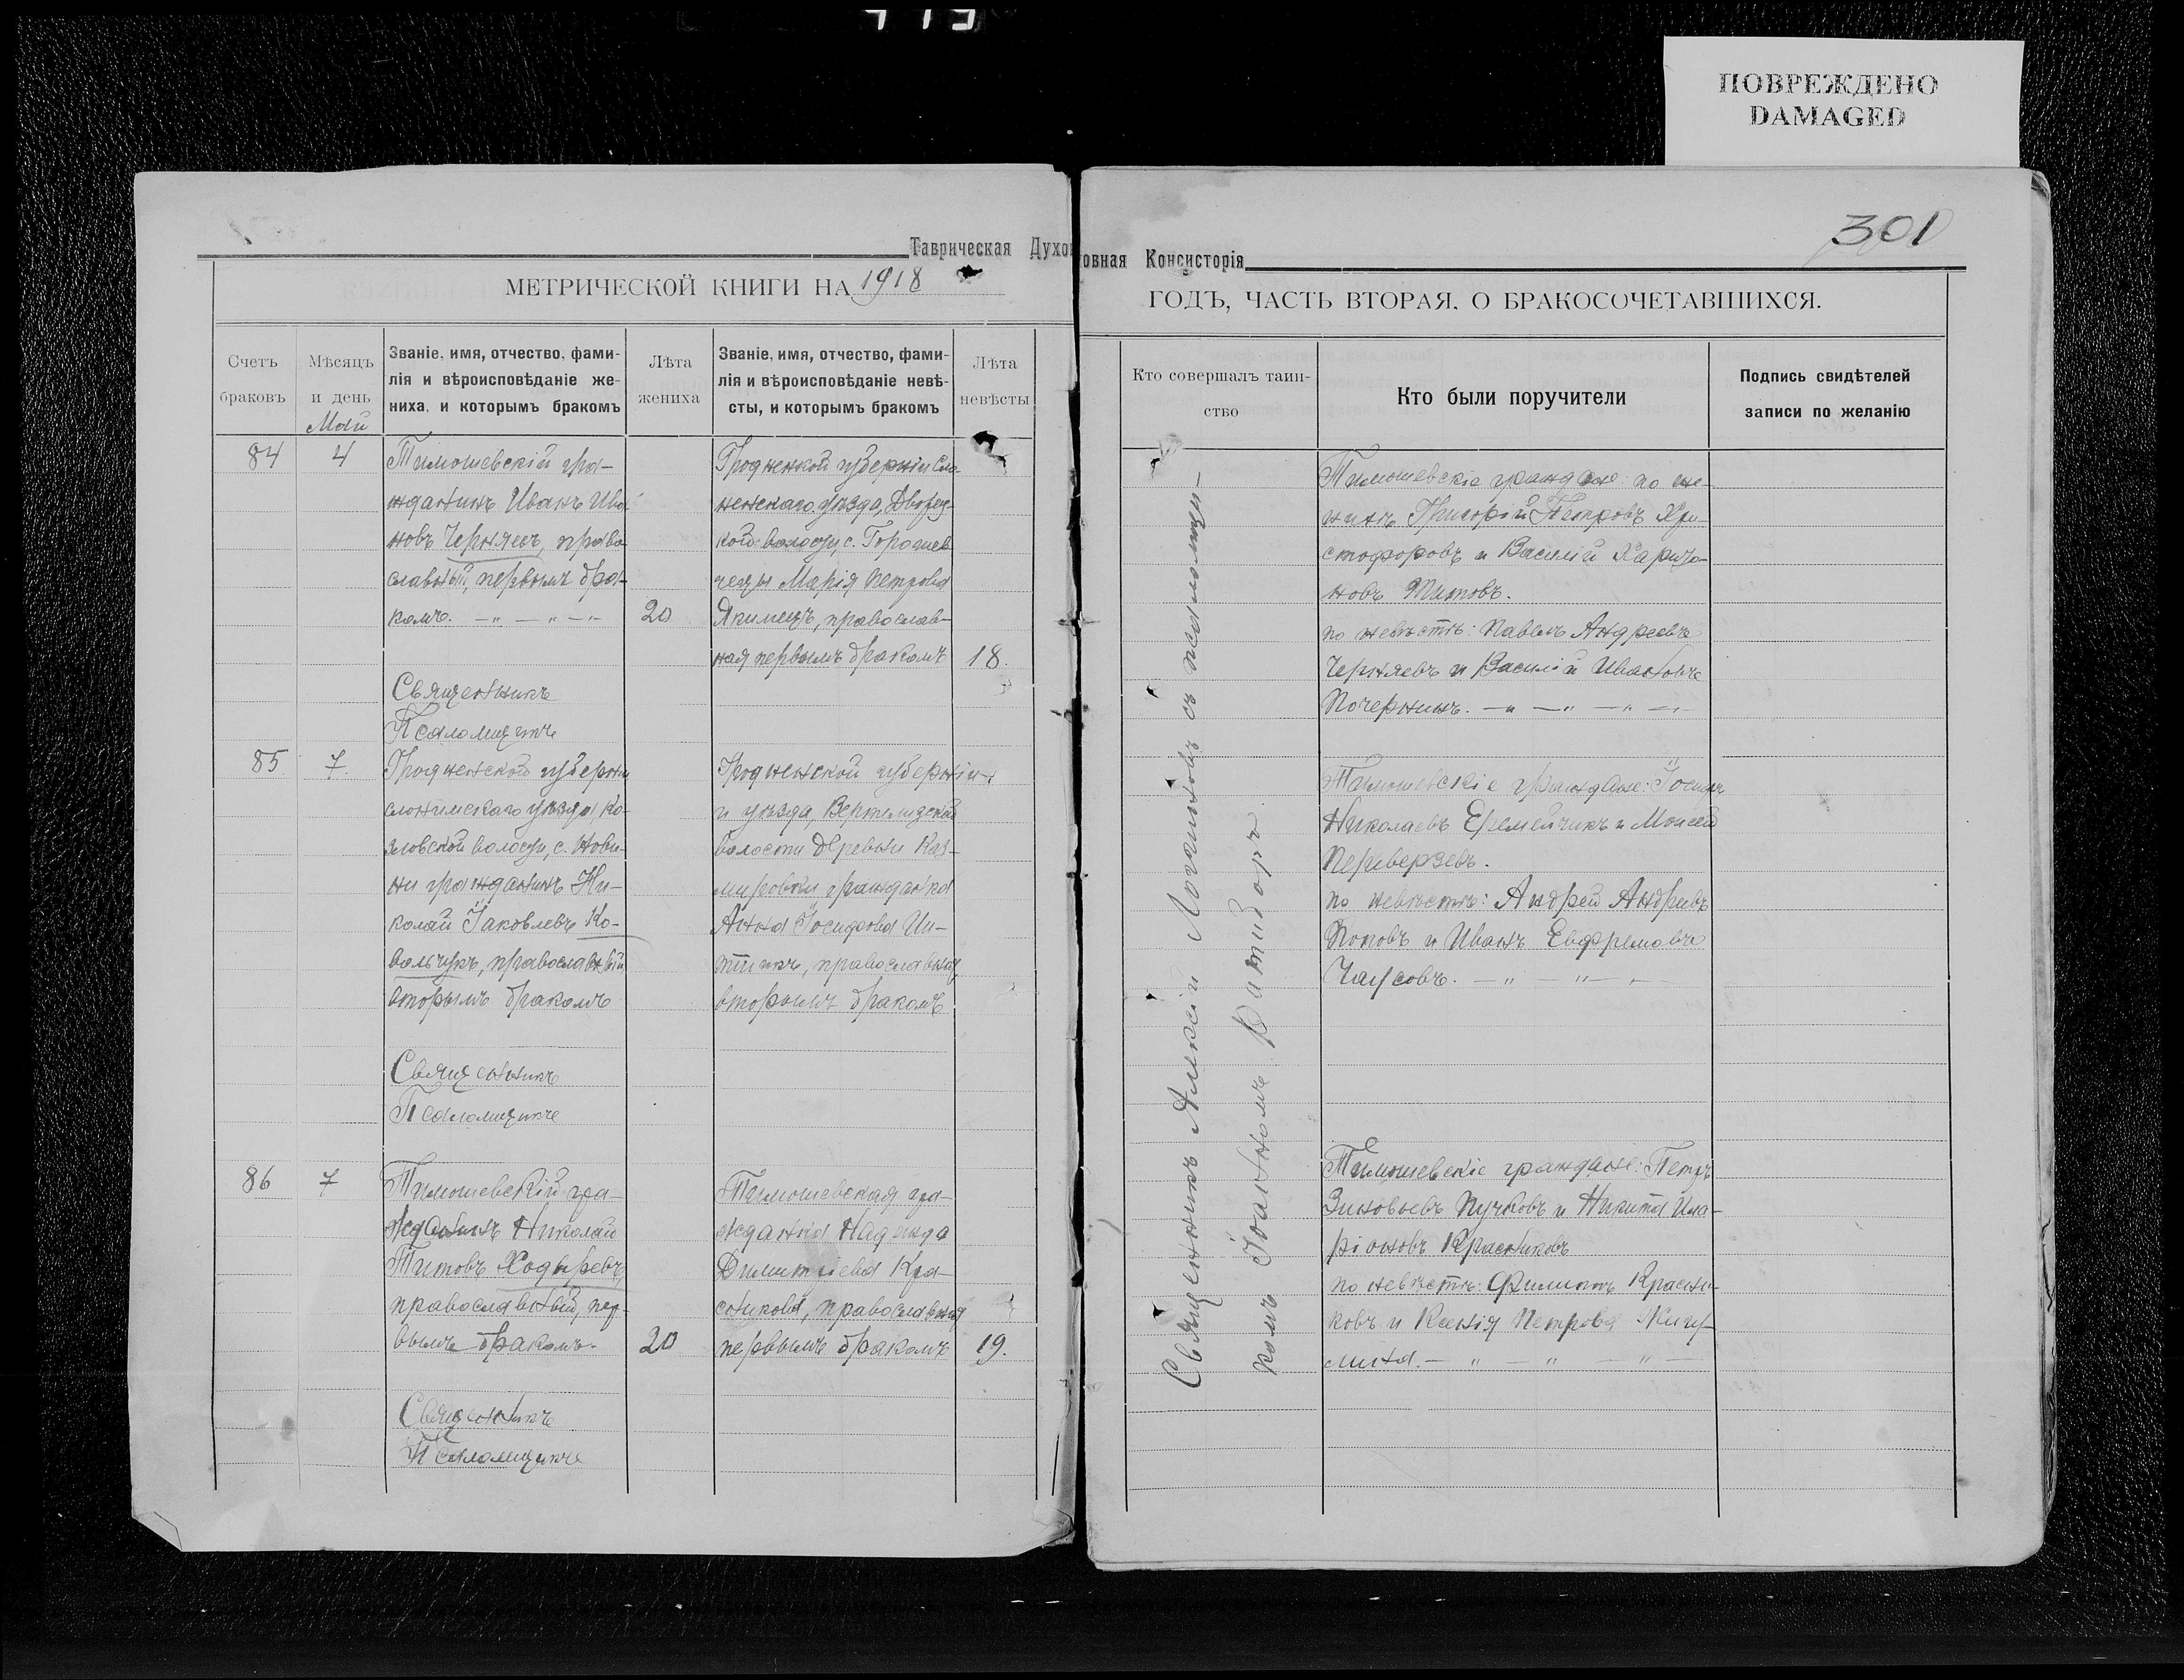 ПОВРЕЖДЕНО
DAMAGED
301
Таврическая Духовная Консисторія
МЕТРИЧЕСКОЙ КНИГИ НА 1918
ГОДЪ, ЧАСТЬ ВТОРАЯ, О БРАКОСОЧЕТАВШИХСЯ.
Счетъ
браковъ
Мѣсяцъ
и день
Май
Званіе, имя, отчество, фами-
лія и вѣроисповѣданіе же-
ниха, и которымъ бракомъ
Лѣта
жениха
Званіе, имя, отчество, фами-
лія и вѣроисповѣданіе невѣ-
сты, и которымъ бракомъ
Лѣта
невѣсты
Кто совершалъ таин-
ство
Кто были поручители
Подпись свидѣтелей
записи по желанію
84
4
Тимошевскій гра-
жданинъ Иванъ Ива-
новъ Черняевъ, право-
славный, первымъ бра-
комъ. — " — " — " —
20
Священникъ
Псаломщикъ
Гродненской губерніи Сло-
нимскаго уѣзда, Дворец-
кой волости, с.
Марія Петрова
Якимецъ, православ-
ная первымъ бракомъ
18.
Тимошевскіе граждане: по же-
нихѣ Григорій Петровъ Хри-
стофоровъ и Василій Харито-
новъ Титовъ.
по невѣстѣ: Павелъ Андреевъ
Черняевъ и Василій Ивановъ
Почернинъ. — " — " — " — " —
85
7.
Гродненской губерніи
слонимскаго уѣзда, Ко-
зловской волости, с. Нови-
ни гражданинъ Ни-
колай Іаковлевъ Ко-
вальчукъ, православный,
вторымъ бракомъ
Священникъ
Псаломщикъ
Гродненской губерніи
и уѣзда, Вертелишской
волости деревни Каз-
мировки гражданка
Анна Іосифова
православная,
вторымъ бракомъ
Тимошевскіе граждане: Іосифъ
Николаевъ Еремейчикъ и Моисей
Переверзевъ.
по невѣстѣ: Андрей Андреевъ
Поповъ и Иванъ Евфремовъ
Чаусовъ. — " — " — " —
86
7
Тимошевскій гра-
жданинъ Николай
Титовъ Ходыревъ,
православный, пер-
вымъ бракомъ.
20
Священникъ
Псаломщикъ
Тимошевская гра-
жданка Надежда
Димитріева Кра-
сникова, православная
первымъ бракомъ
19.
Тимошевскіе граждане: Петръ
Зиновьевъ Пучковъ и Никита Ила-
ріоновъ Красниковъ
по невѣстѣ: Филиппъ Красни-
ковъ и Ксенія Петрова Жигу-
лина. — " — " — " —
Священникъ Алексій Логгиновъ съ псаломщи-
комъ Іоанномъ